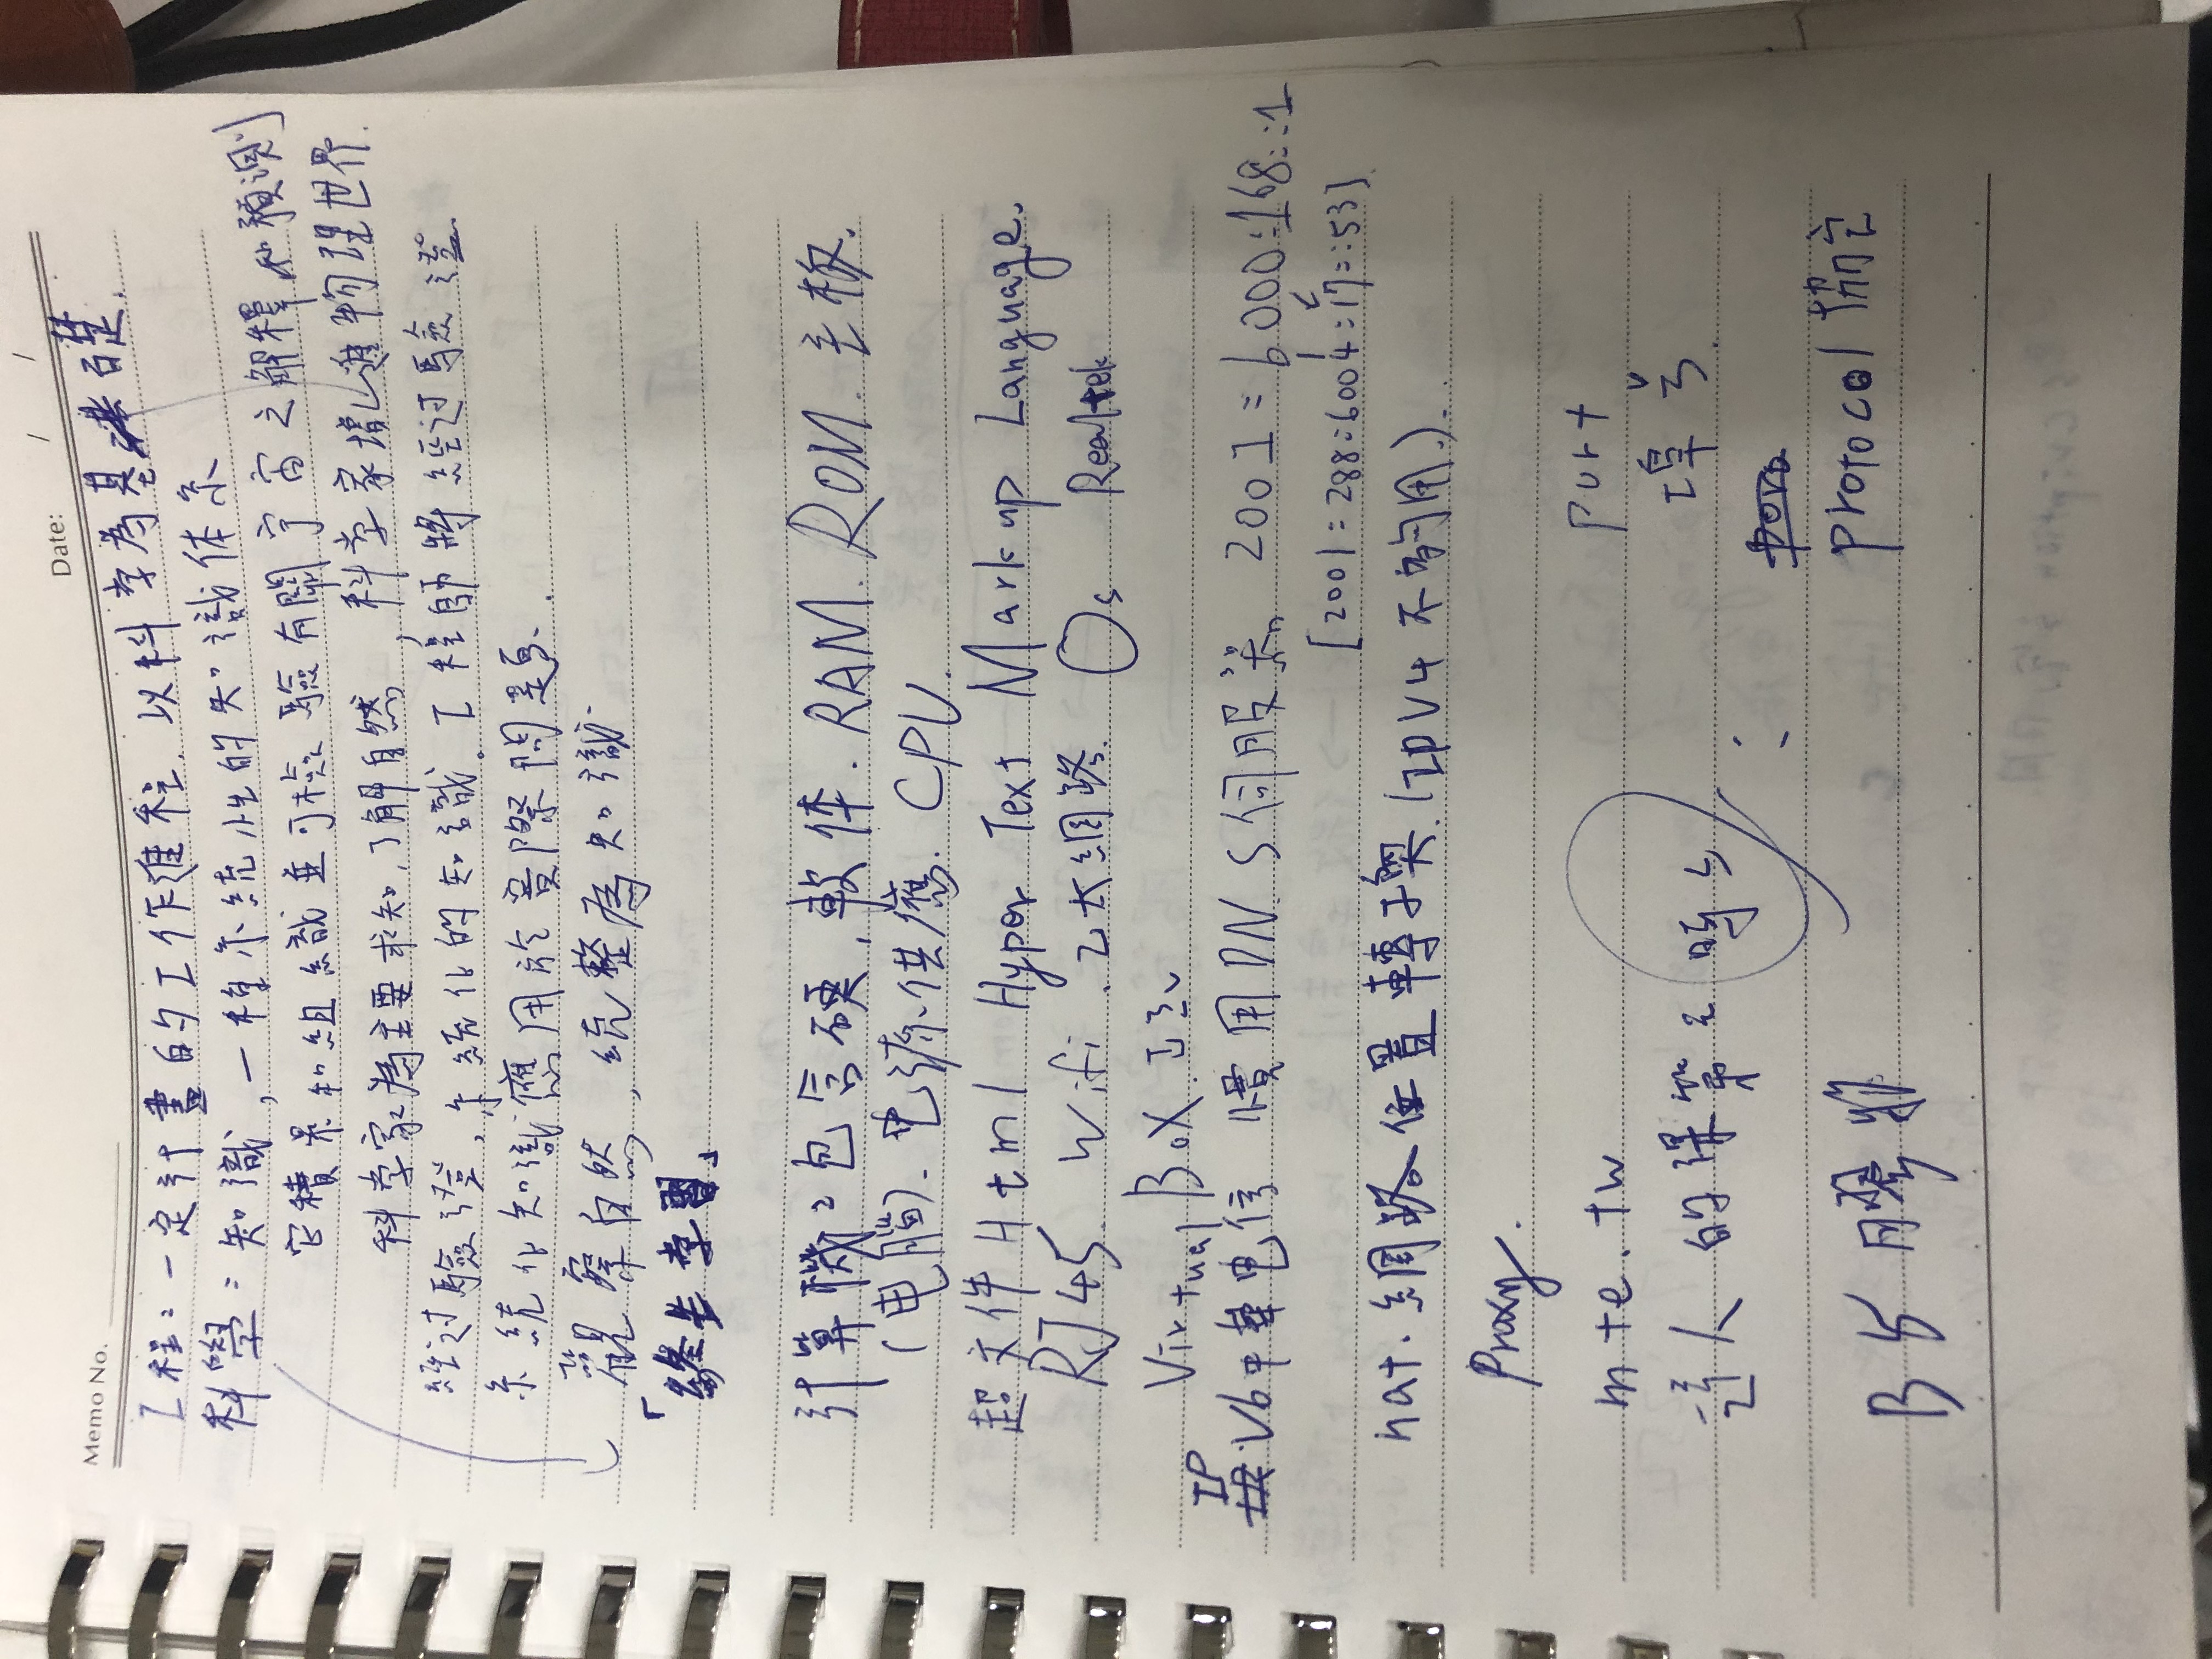 Memo No.
Date: / /
工程:一定計畫的工作進程.以科学為基礎.
科學:知識,一種系統性的知識体系
它積累和組織並可檢驗有關宇宙之解釋和預測
科学家為主要求知,了解自然,科学家增進物理世界.
經过驗證,系統化的知識.工程師將經过驗證
系統化知識應用於實際問題.
觀察自然,統整為知識
「終生学習」
計算機:包含硬,軟体.RAM.ROM.主板.
(电腦).电源供應.CPU.
超文件 Html Hyper Text Markup Language.
RJ45. Wifi.乙太網路. Os Realtek
Virtual Box.
IP
V6中華电信 慣用DNS伺服器 2001:6000:168::1
[2001:288:6004:17::53]
nat.網路位置轉換.(IPV4不夠用.).
Proxy.
mte.tw
port
的課第
埠号.
protocol協定
B 5